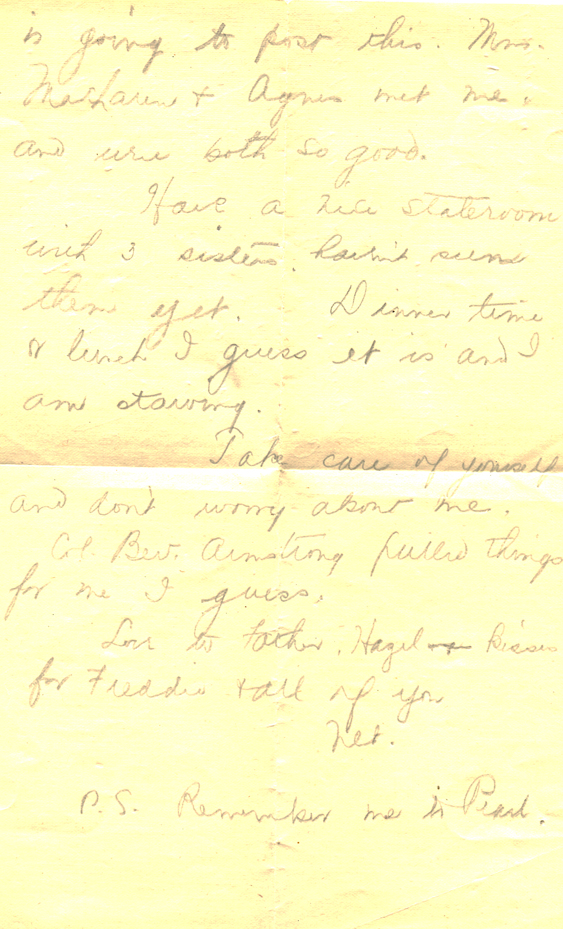 is going to post this. Mrs.
MacLaren + Agnes met me.
and were both so good.
Have a nice stateroom
with 3 sisters. haven't seen
them yet. Dinner time
or lunch I guess it is and I
am starving.
Take care of yourself
and don't worry about me.
Col. Bev. Armstrong pulled things
for me I guess.
Love to Father, Hazel kisses
for Freddie + all of you
Net.
P.S. Remember me to Pearl.